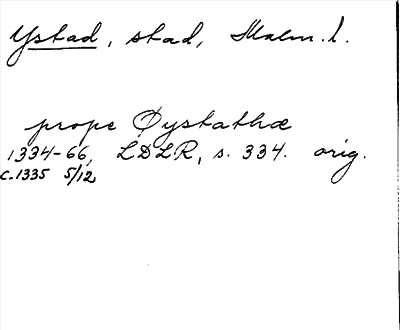 Ystad, stad, Malm. l.
prope Øystathæ
1334-66, LDLR, s. 334. orig.
c. 1335 5/12